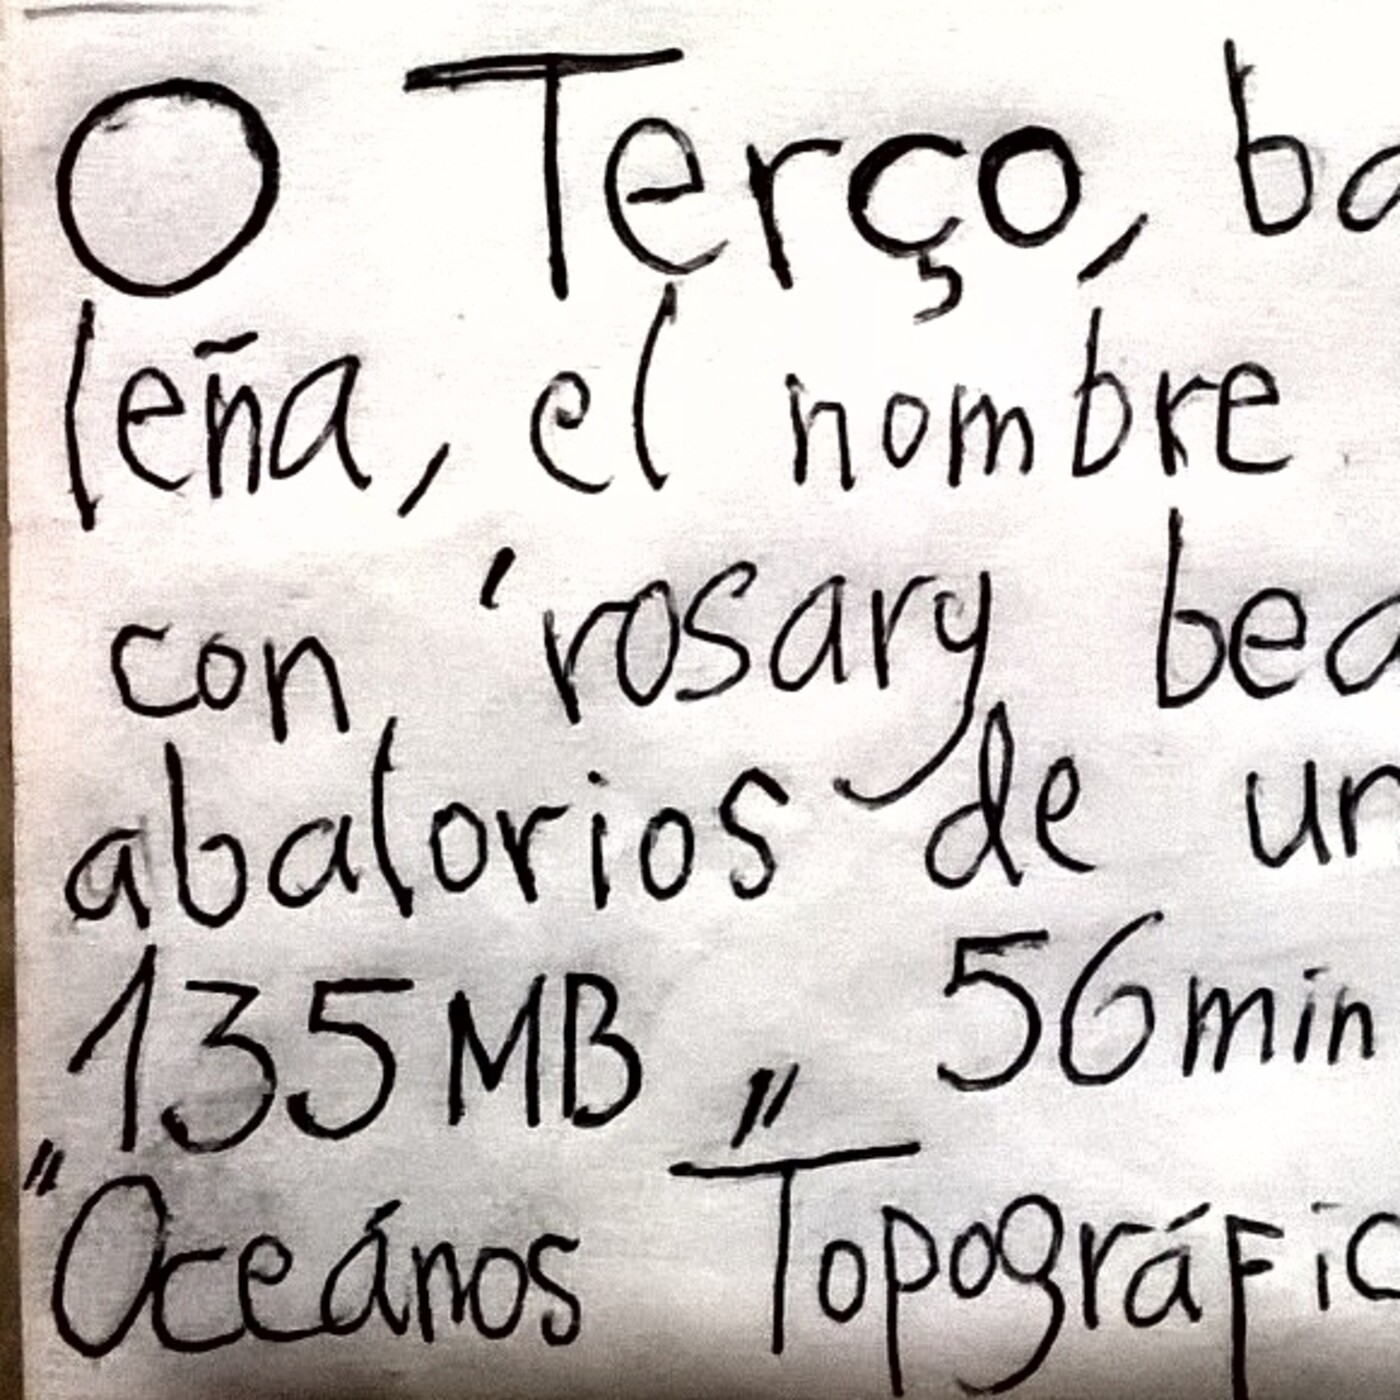 O Terço, ba
leña, el nombre
con 'rosary bea
abalorios de un
135MB „ 56min
"Oceános Topográfic